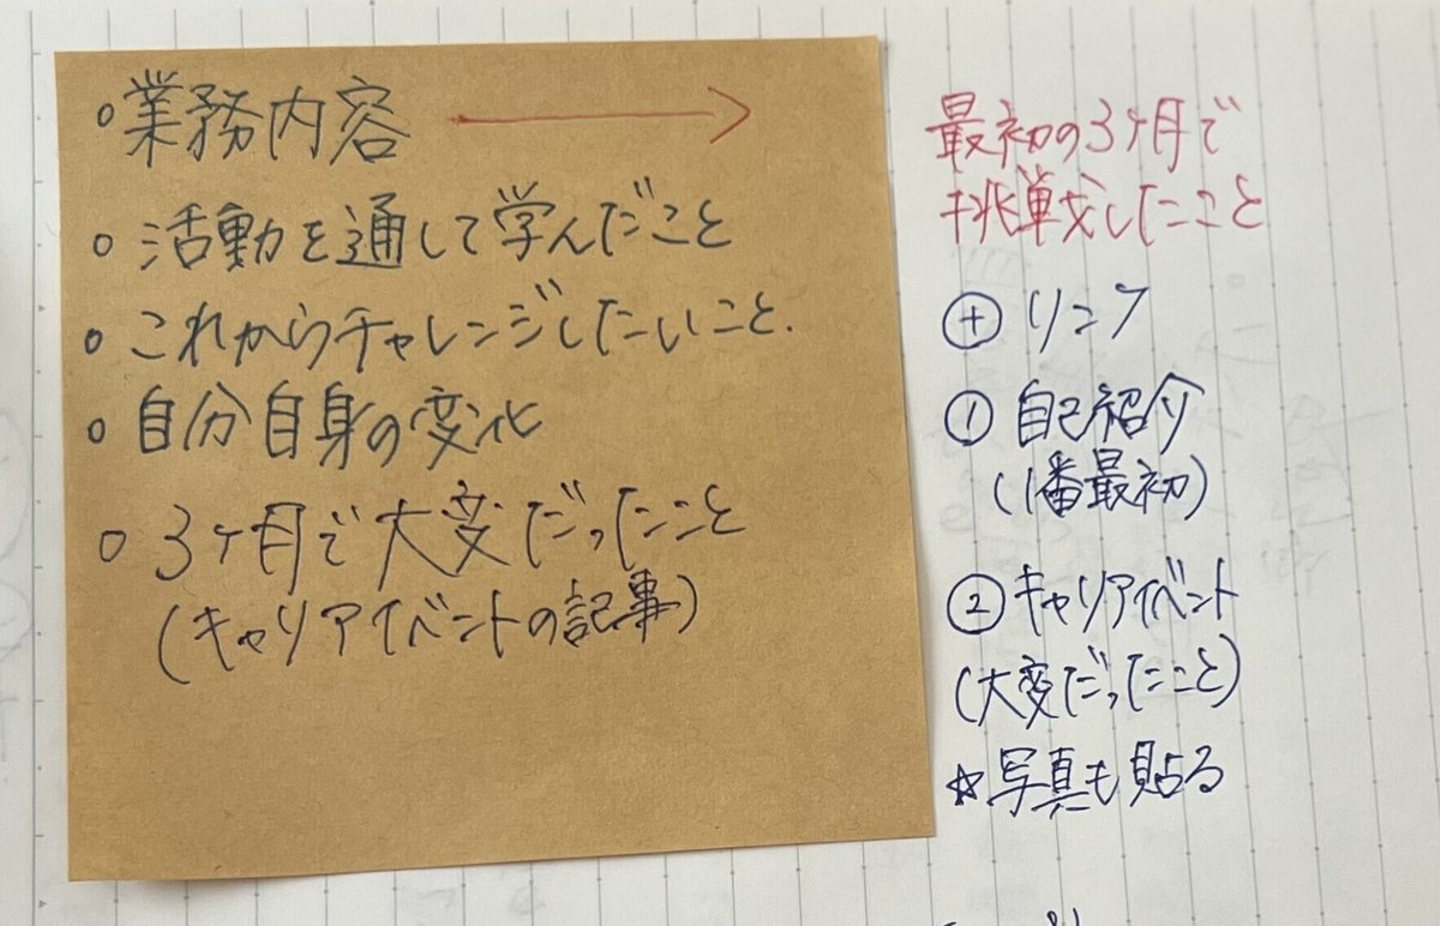 ○業務内容 →
○活動を通して学んだこと
○これからチャレンジしたいこと.
○自分自身の変化
○3ヶ月で大変だったこと
(キャリアイベントの記事)
最初の3ヶ月で
挑戦したこと
⊕リンク
①自己紹介
(1番最初)
②キャリアイベント
(大変だったこと)
☆写真も貼る